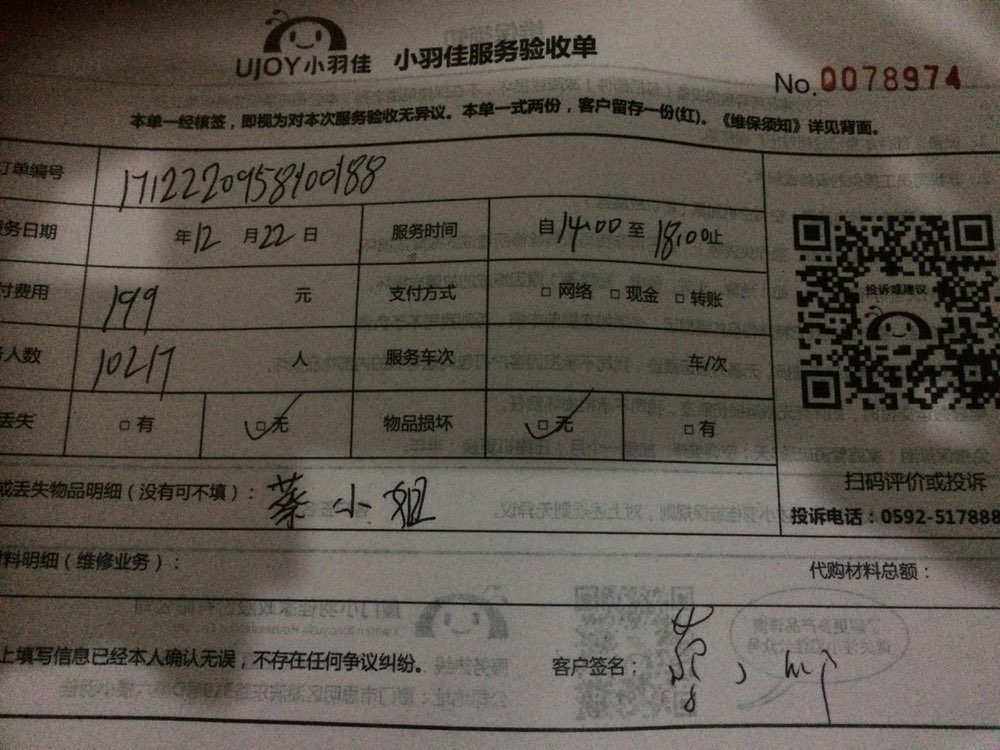 UJOY小羽佳 小羽佳服务验收单
No.0078974
本单一经核签，即视为对本次服务验收无异议。本单一式两份，客户留存一份(红)。《维保须知》详见背面。
订单编号 1712220958100188
务日期 年12 月22 日 服务时间 自14:00 至 18:00止
付费用 199 元 支付方式 □网络 □现金 □转账
人数 10217 人 服务车次 车/次
丢失 □有 □无 物品损坏 □无 □有
投诉或建议
扫码评价或投诉
投诉电话：0592-517888
或丢失物品明细（没有可不填）： 蔡小姐
料明细（维修业务）： 代购材料总额：
上填写信息已经本人确认无误，不存在任何争议纠纷。 客户签名：